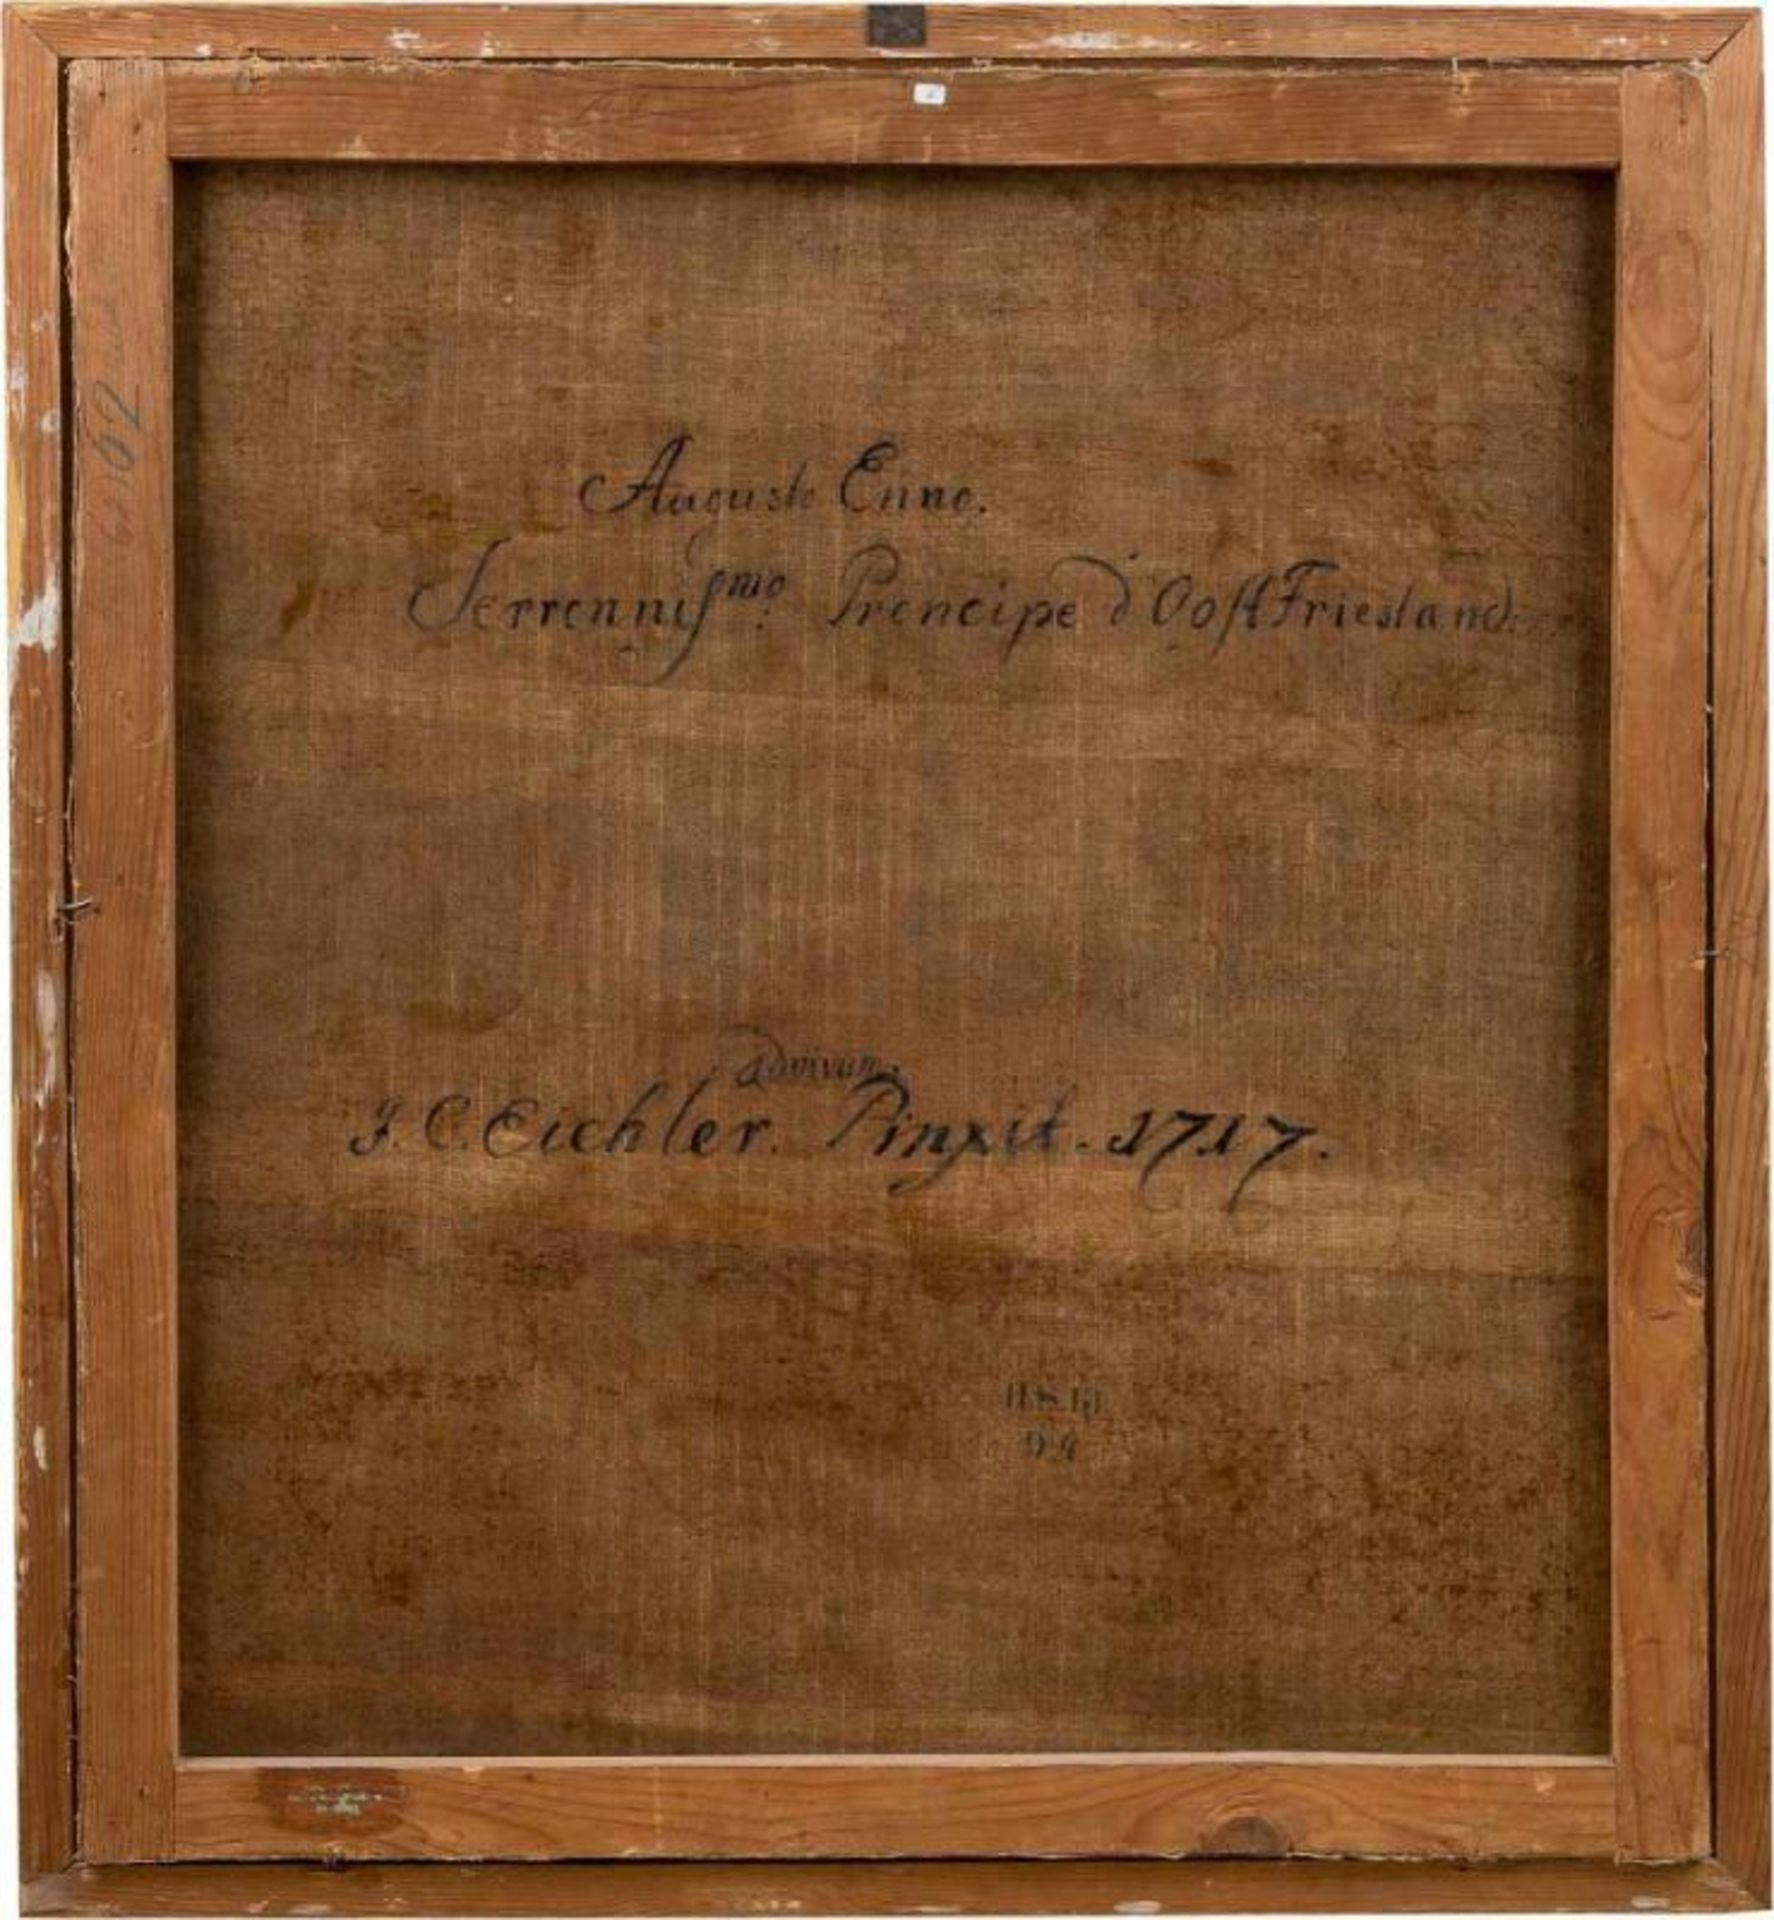 Auguste Enno.
Serrenniss^mo. Prencipe d'Oost Friesland
ad vivum.
J. C. Eichler. Pinxit. 1717.